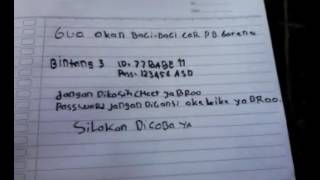 GUA akan BaGi-BaGi car PB Garena
Bintang 3 ID: 77BABE 11
Pass: 123456 ASD
Jangan DikasihCHeet ya BROO
Password jangan DiGanti oke
Silakan DicoBa YA